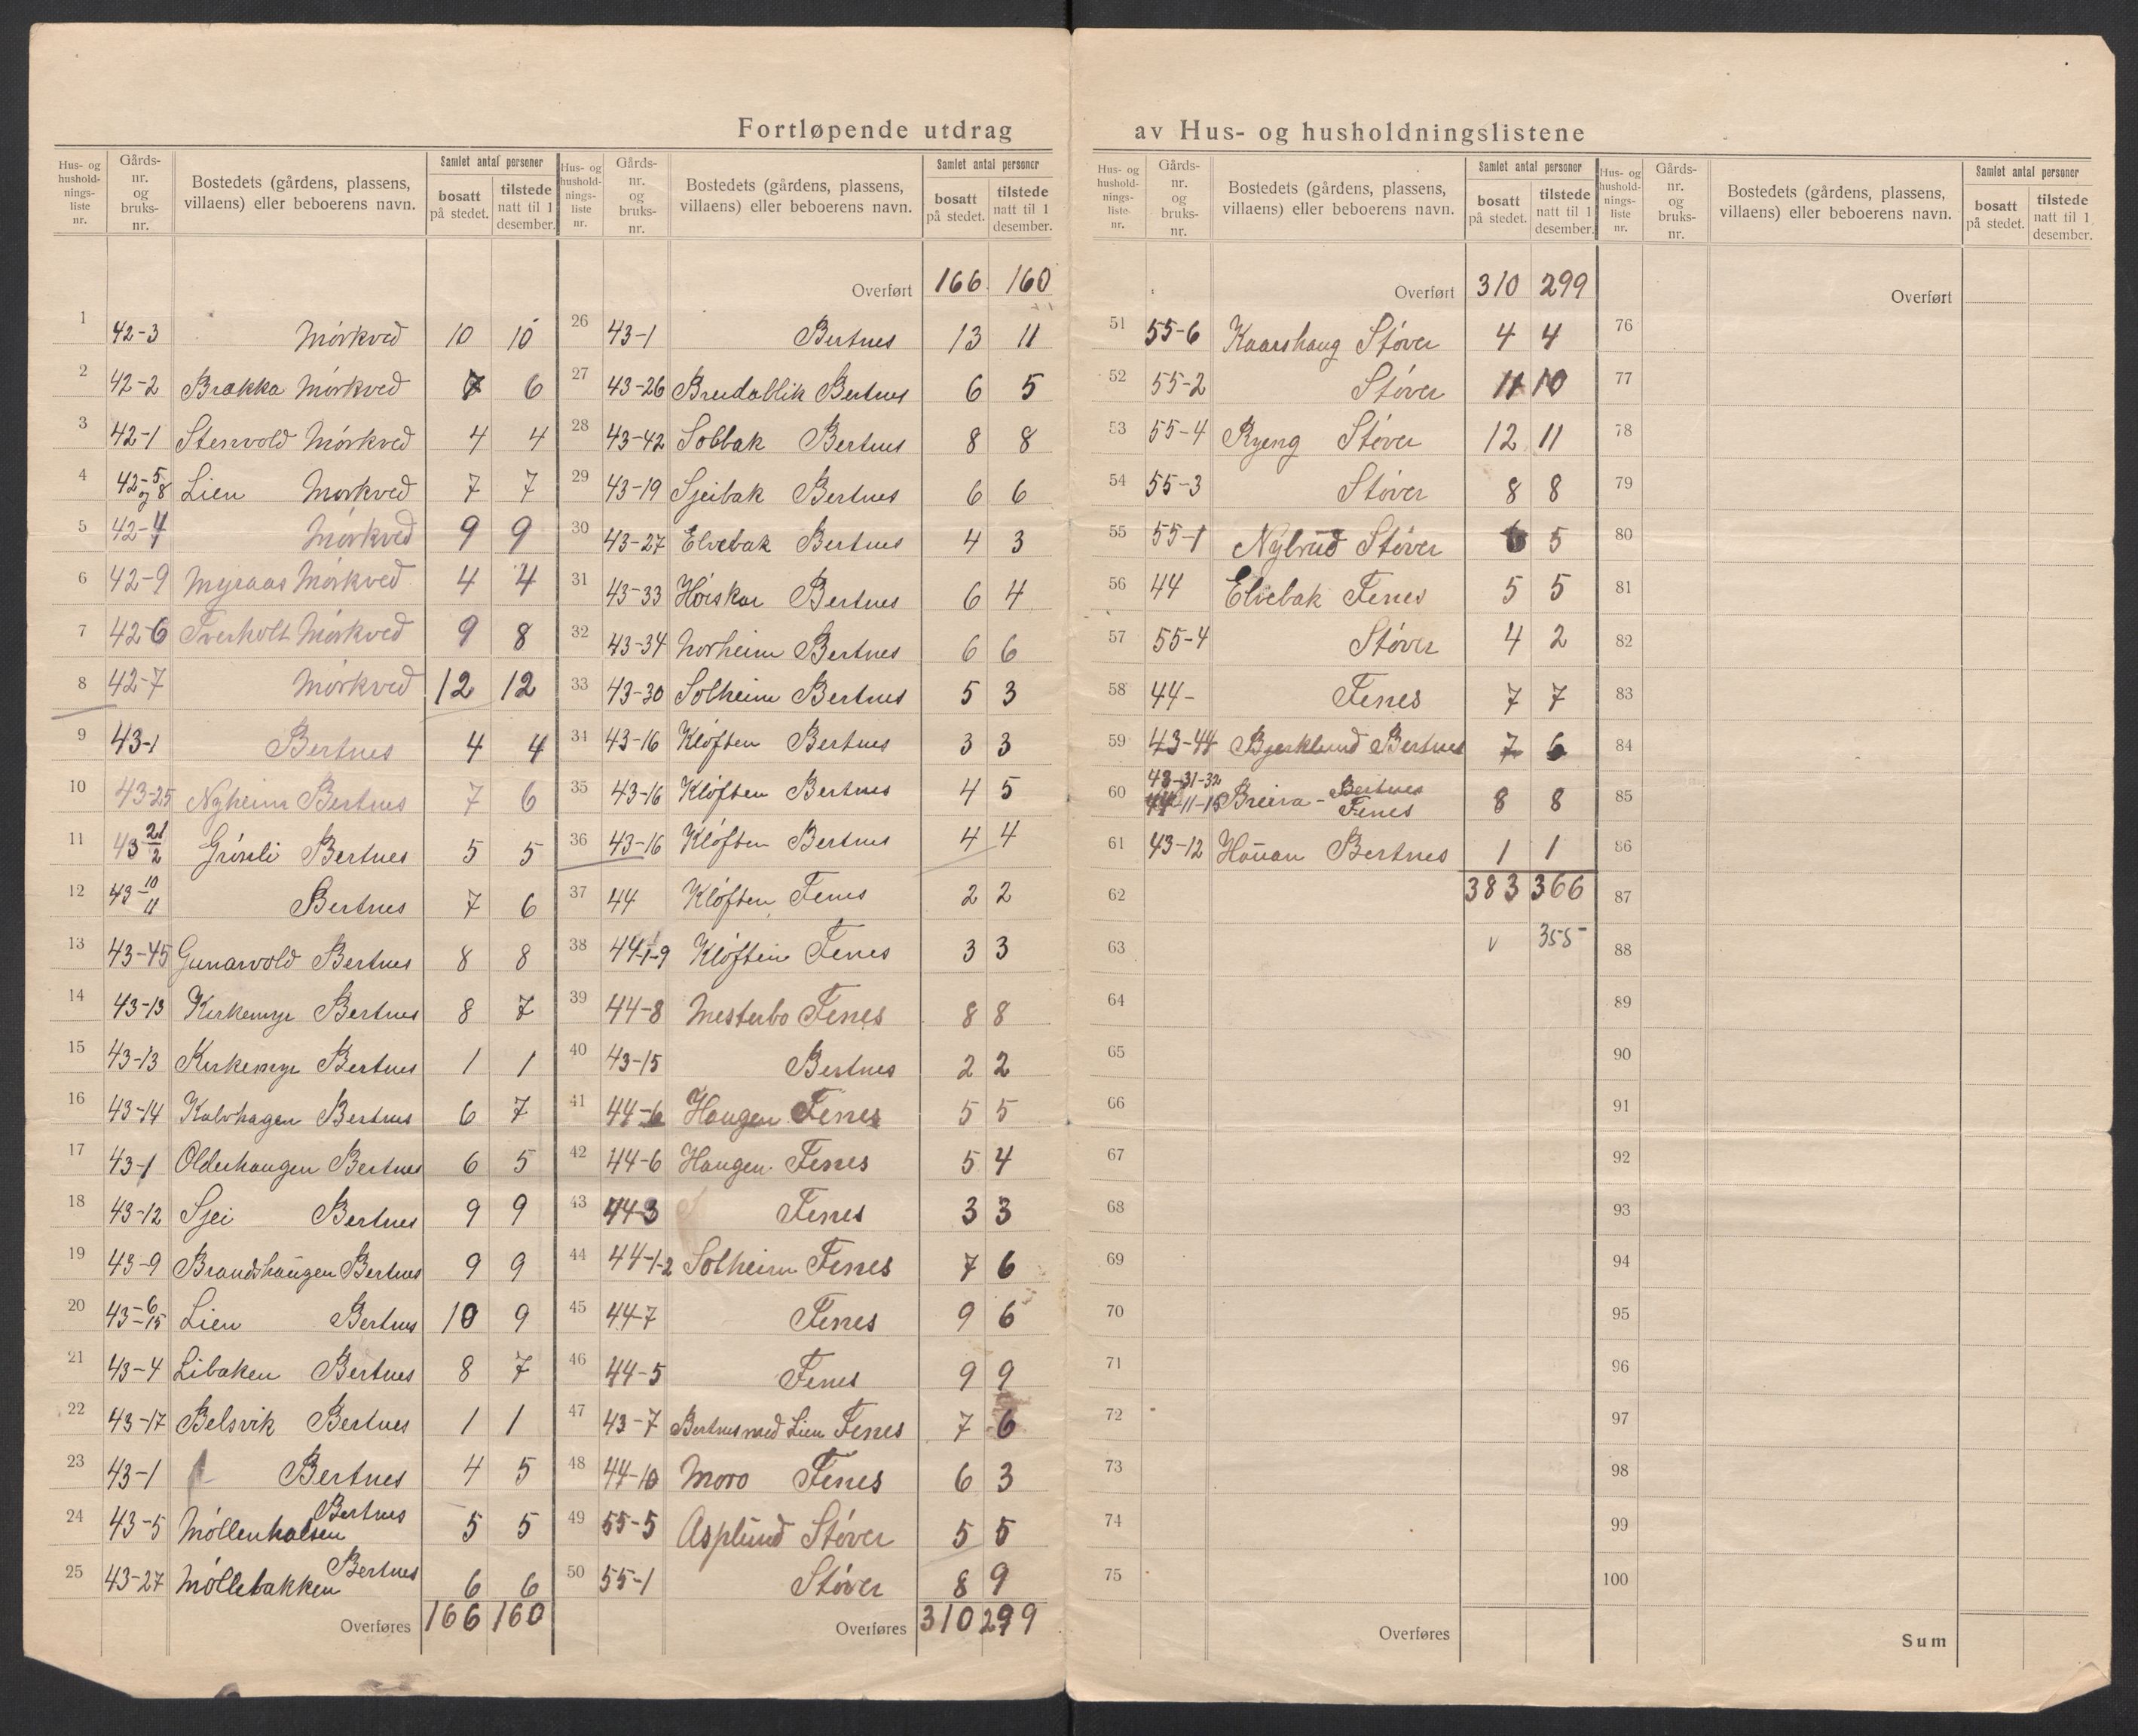 Fortløpende utdrag av Hus- og husholdningslistene
Hus- og husholdnings-liste nr. Gårds-nr. og bruks-nr. Bostedets (gårdens, plassens, villaens) eller beboerens navn. Samlet antal personer bosatt på stedet. tilstede natt til 1 desember.
1 42-3 Mörkved 10 10
2 42-2 Brakka Mörkved 7 6
3 42-1 Stenvold Mörkved 4 4
4 42-5 og 8 Lien Mörkved 7 7
5 42-4 Mörkved 9 9
6 42-9 Myraas Mörkved 4 4
7 42-6 Tverholt Mörkved 9 8
8 42-7 Mörkved 12 12
9 43-1 Bertnes 4 4
10 43-25 Nyheim Bertnes 7 6
11 43 21/2 Grönli Bertnes 5 5
12 43-10 11 Bertnes 7 6
13 43-45 Gunarvold Bertnes 8 8
14 43-13 Kirkemyr Bertnes 8 7
15 43-13 Kirkemyr Bertnes 1 1
16 43-14 Kalvhagen Bertnes 6 7
17 43-1 Olderhaugen Bertnes 6 5
18 43-12 Sjei Bertnes 9 9
19 43-9 Brandshaugen Bertnes 9 9
20 43-6-15 Lien Bertnes 10 9
21 43-4 Libakken Bertnes 8 7
22 43-17 Belsvik Bertnes 1 1
23 43-1 Bertnes 4 5
24 43-5 Möllenhalsen Bertnes 5 5
25 43-27 Möllebakken Bertnes 6 6
Overføres 166 160
Hus- og husholdnings-liste nr. Gårds-nr. og bruks-nr. Bostedets (gårdens, plassens, villaens) eller beboerens navn. Samlet antal personer bosatt på stedet. tilstede natt til 1 desember.
Overført 166 160
26 43-1 Bertnes 13 11
27 43-26 Breidablik Bertnes 6 5
28 43-42 Solbak Bertnes 8 8
29 43-19 Sjeibak Bertnes 6 6
30 43-27 Elvebak Bertnes 4 3
31 43-33 Höiskar Bertnes 6 4
32 43-34 Norheim Bertnes 6 6
33 43-30 Solheim Bertnes 5 3
34 43-16 Klöften Bertnes 3 3
35 43-16 Klöften Bertnes 4 5
36 43-16 Klöften Bertnes 4 4
37 44 Klöften Fenes 2 2
38 44-1-9 Klöften Fenes 3 3
39 44-8 Mesterbo Fenes 8 8
40 43-15 Bertnes 2 2
41 44-6 Haugen Fenes 5 5
42 44-6 Haugen Fenes 5 4
43 44-3 Fenes 3 3
44 44-1-2 Solheim Fenes 7 6
45 44-7 Fenes 9 6
46 44-5 Fenes 9 9
47 43-7 Bertnes med Lien Fenes 7 6
48 44-10 Moro Fenes 6 3
49 55-5 Asplund Stöver 5 5
50 55-1 Stöver 8 9
Overføres 310 299
Hus- og husholdnings-liste nr. Gårds-nr. og bruks-nr. Bostedets (gårdens, plassens, villaens) eller beboerens navn. Samlet antal personer bosatt på stedet. tilstede natt til 1 desember.
Overført 310 299
51 55-6 Kaarshaug Stöver 4 4
52 55-2 Stöver 11 10
53 55-4 Ryeng Stöver 12 11
54 55-3 Stöver 8 8
55 55-1 Nybrud Stöver 6 5
56 44 Elvebak Fenes 5 5
57 55-4 Stöver 4 2
58 44- Fenes 7 7
59 43-44 Bjerklund Bertnes 7 6
60 43-31-32 44-11-15 Breiva - Bertnes Fenes 8 8
61 43-12 Hauan Bertnes 1 1
62 383 366
63 v 355
64
65
66
67
68
69
70
71
72
73
74
75
Overføres
Hus- og husholdnings-liste nr. Gårds-nr. og bruks-nr. Bostedets (gårdens, plassens, villaens) eller beboerens navn. Samlet antal personer bosatt på stedet. tilstede natt til 1 desember.
Overført
76
77
78
79
80
81
82
83
84
85
86
87
88
89
90
91
92
93
94
95
96
97
98
99
100
Sum